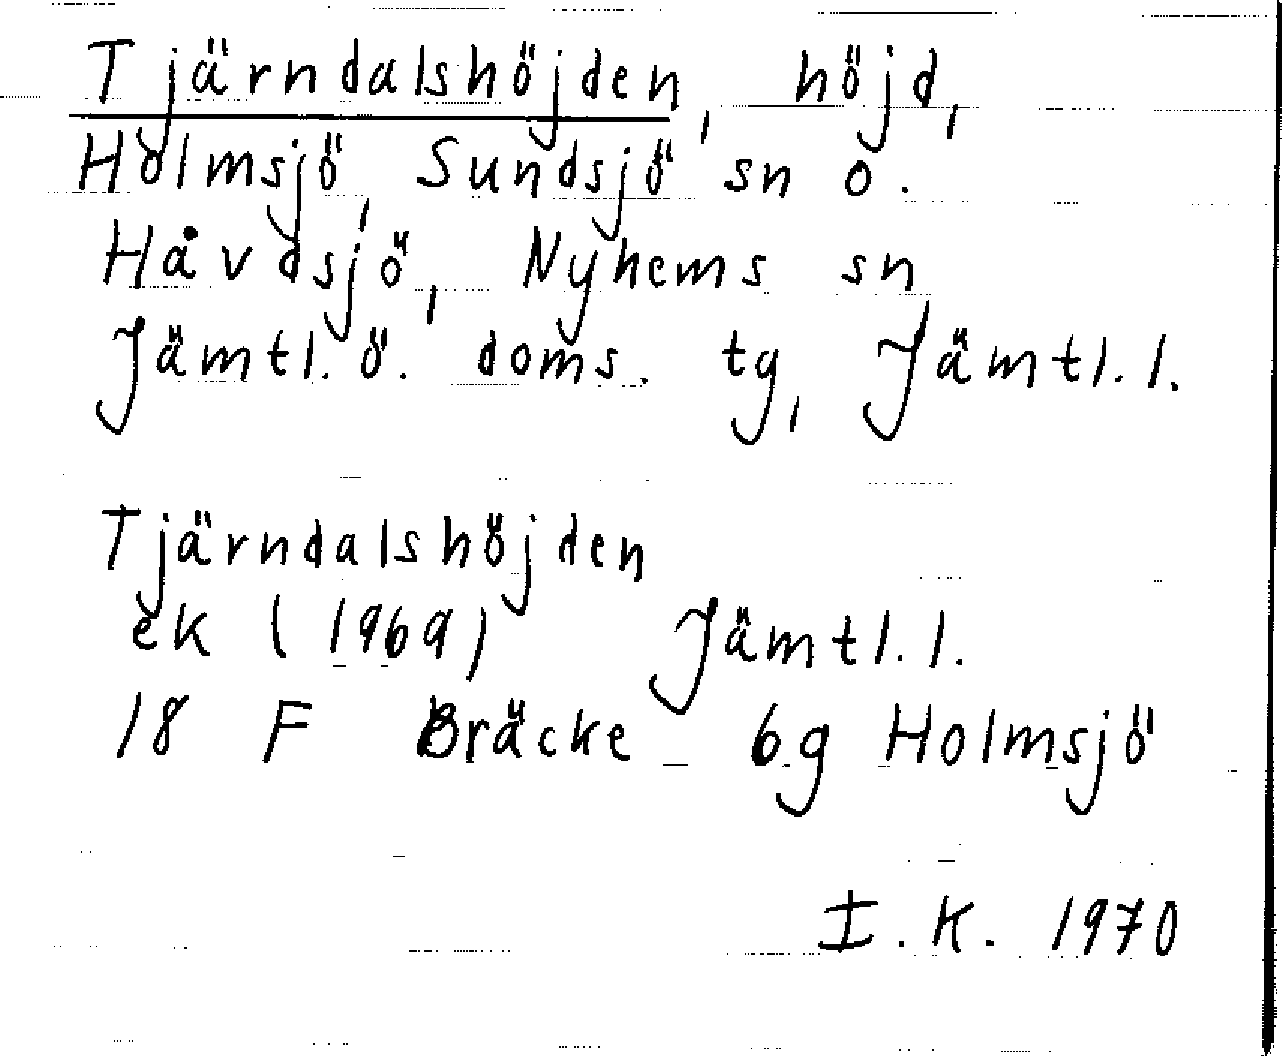 Tjärndalshöjden, höjd,
Holmsjö, Sundsjö sn o.
Håvdsjö, Nyhems sn
Jämtl. ö. doms. tg, Jämtl. l.
Tjärndalshöjden
ek (1969) Jämtl. l.
18 F Bräcke 6g Holmsjö
I. K. 1970